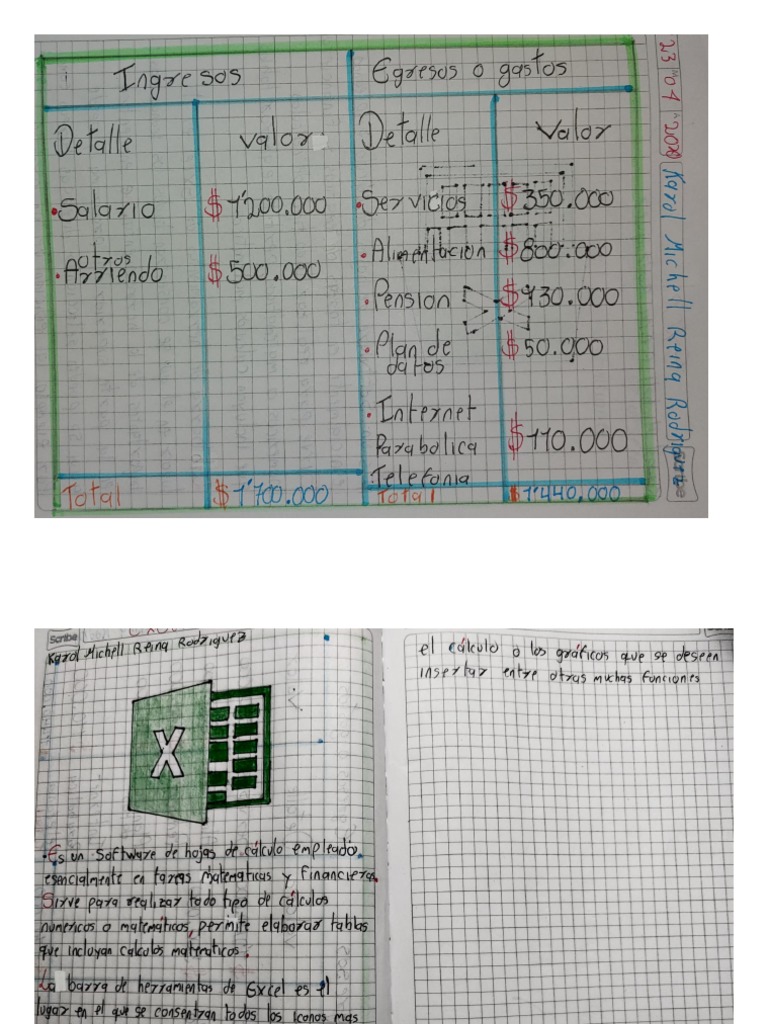 Ingresos
Egresos o gastos
Detalle
valor
Detalle
Valor
• Salario
$ 1'200.000
• Servicios
$ 350.000
Otros
• Arriendo
$ 500.000
• Alimentacion
$ 800.000
• Pension
$ 130.000
• Plan de
datos
$ 50.000
• Internet
Parabolica
Telefonia
$ 110.000
Total
$ 1'700.000
Total
$ 1'440,000
Karol Michell Reina Rodriguez
Scribe
Karol Michell Reina Rodriguez
X
• Es un software de hojas de cálculo empleado
esencialmente en tareas matematicas y financieras.
Sirve para realizar todo tipo de cálculos
numericos o matemáticos, permite elaborar tablas
que incluyan calculos matematicos.
La barra de herramientas de Excel es el
lugar en el que se consentran todos los iconos mas
el cálculo o los gráficos que se deseen
insertar entre otras muchas funciones